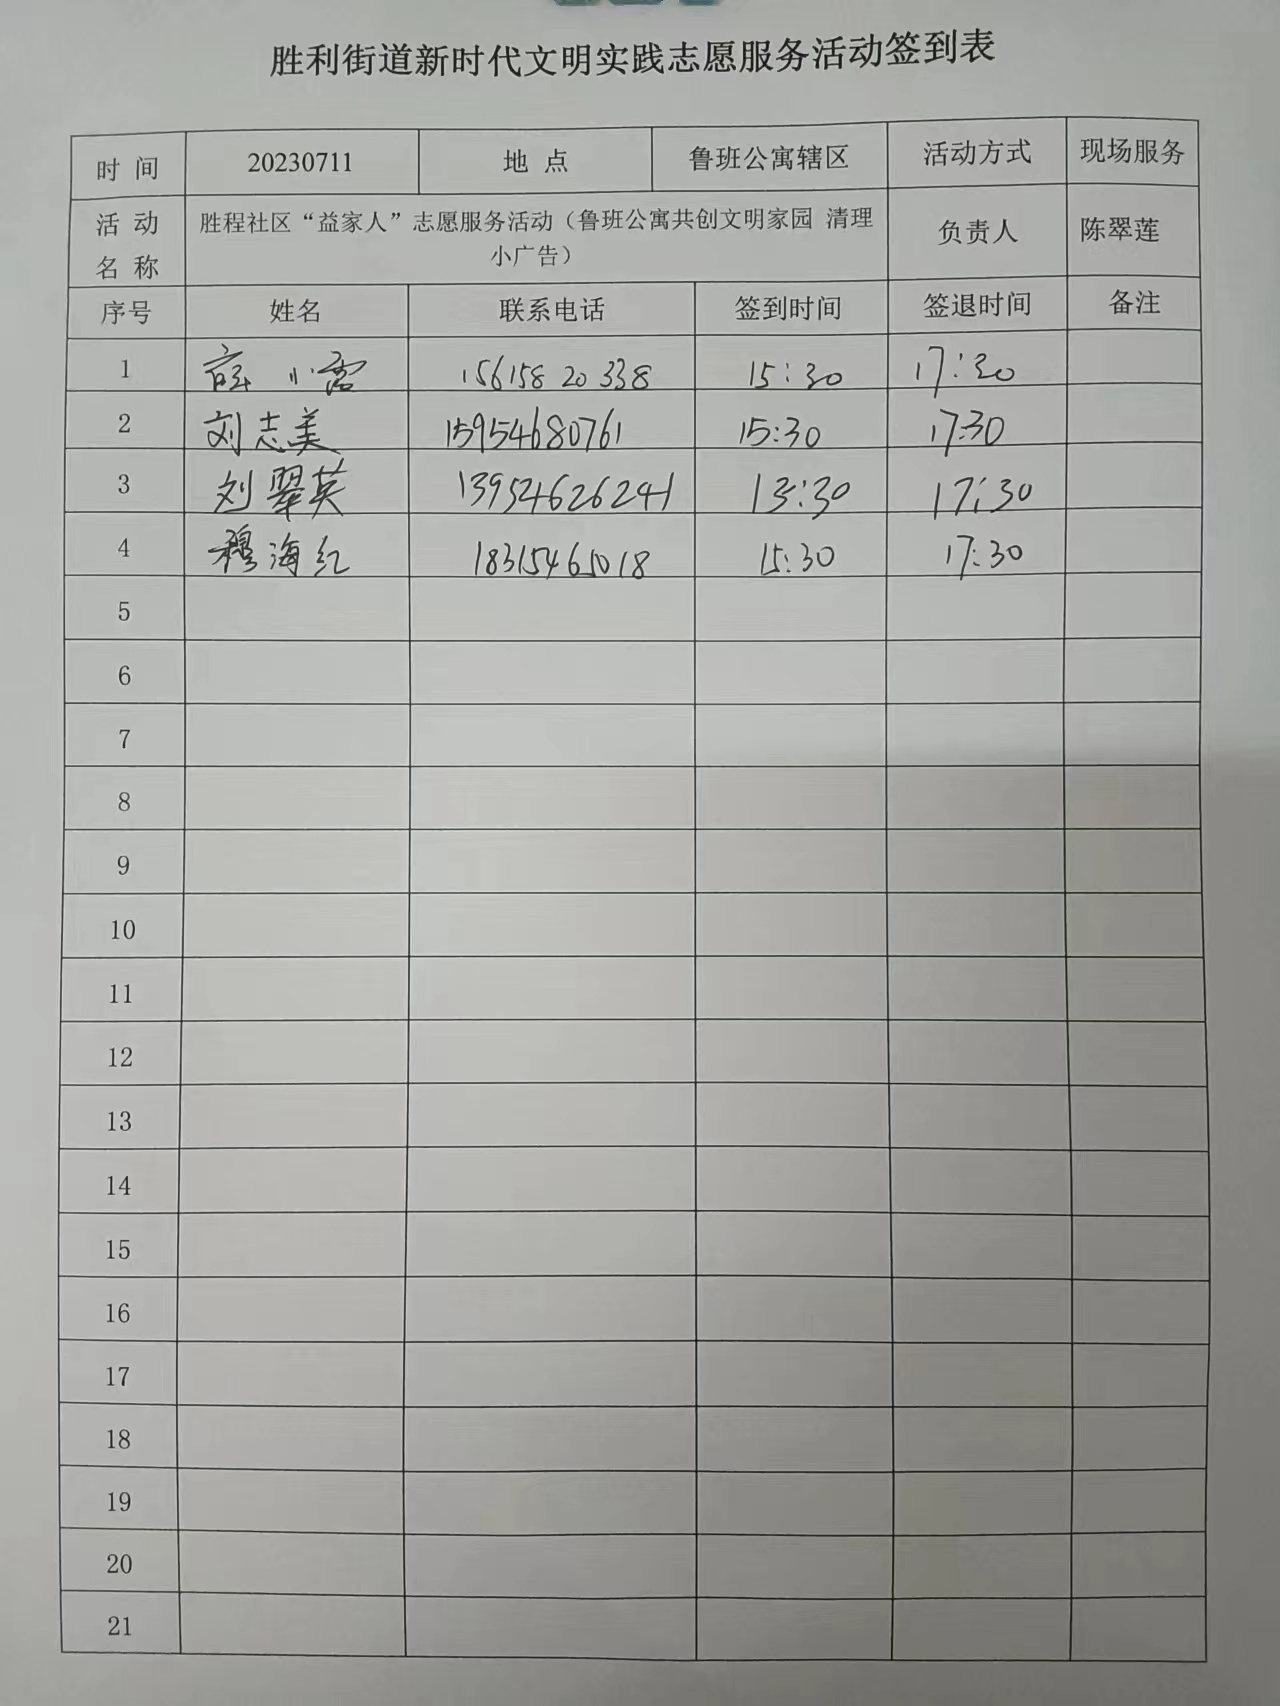 胜利街道新时代文明实践志愿服务活动签到表
时 间 20230711 地 点 鲁班公寓辖区 活动方式 现场服务
活 动 名 称 胜程社区“益家人”志愿服务活动（鲁班公寓共创文明家园 清理
小广告） 负责人 陈翠莲
序号 姓名 联系电话 签到时间 签退时间 备注
1 小露 15615820338 15:30 17:30
2 刘志美 15954680761 15:30 17:30
3 刘翠英 13954626241 13:30 17:30
4 穆海红 18315465018 15:30 17:30
5
6
7
8
9
10
11
12
13
14
15
16
17
18
19
20
21